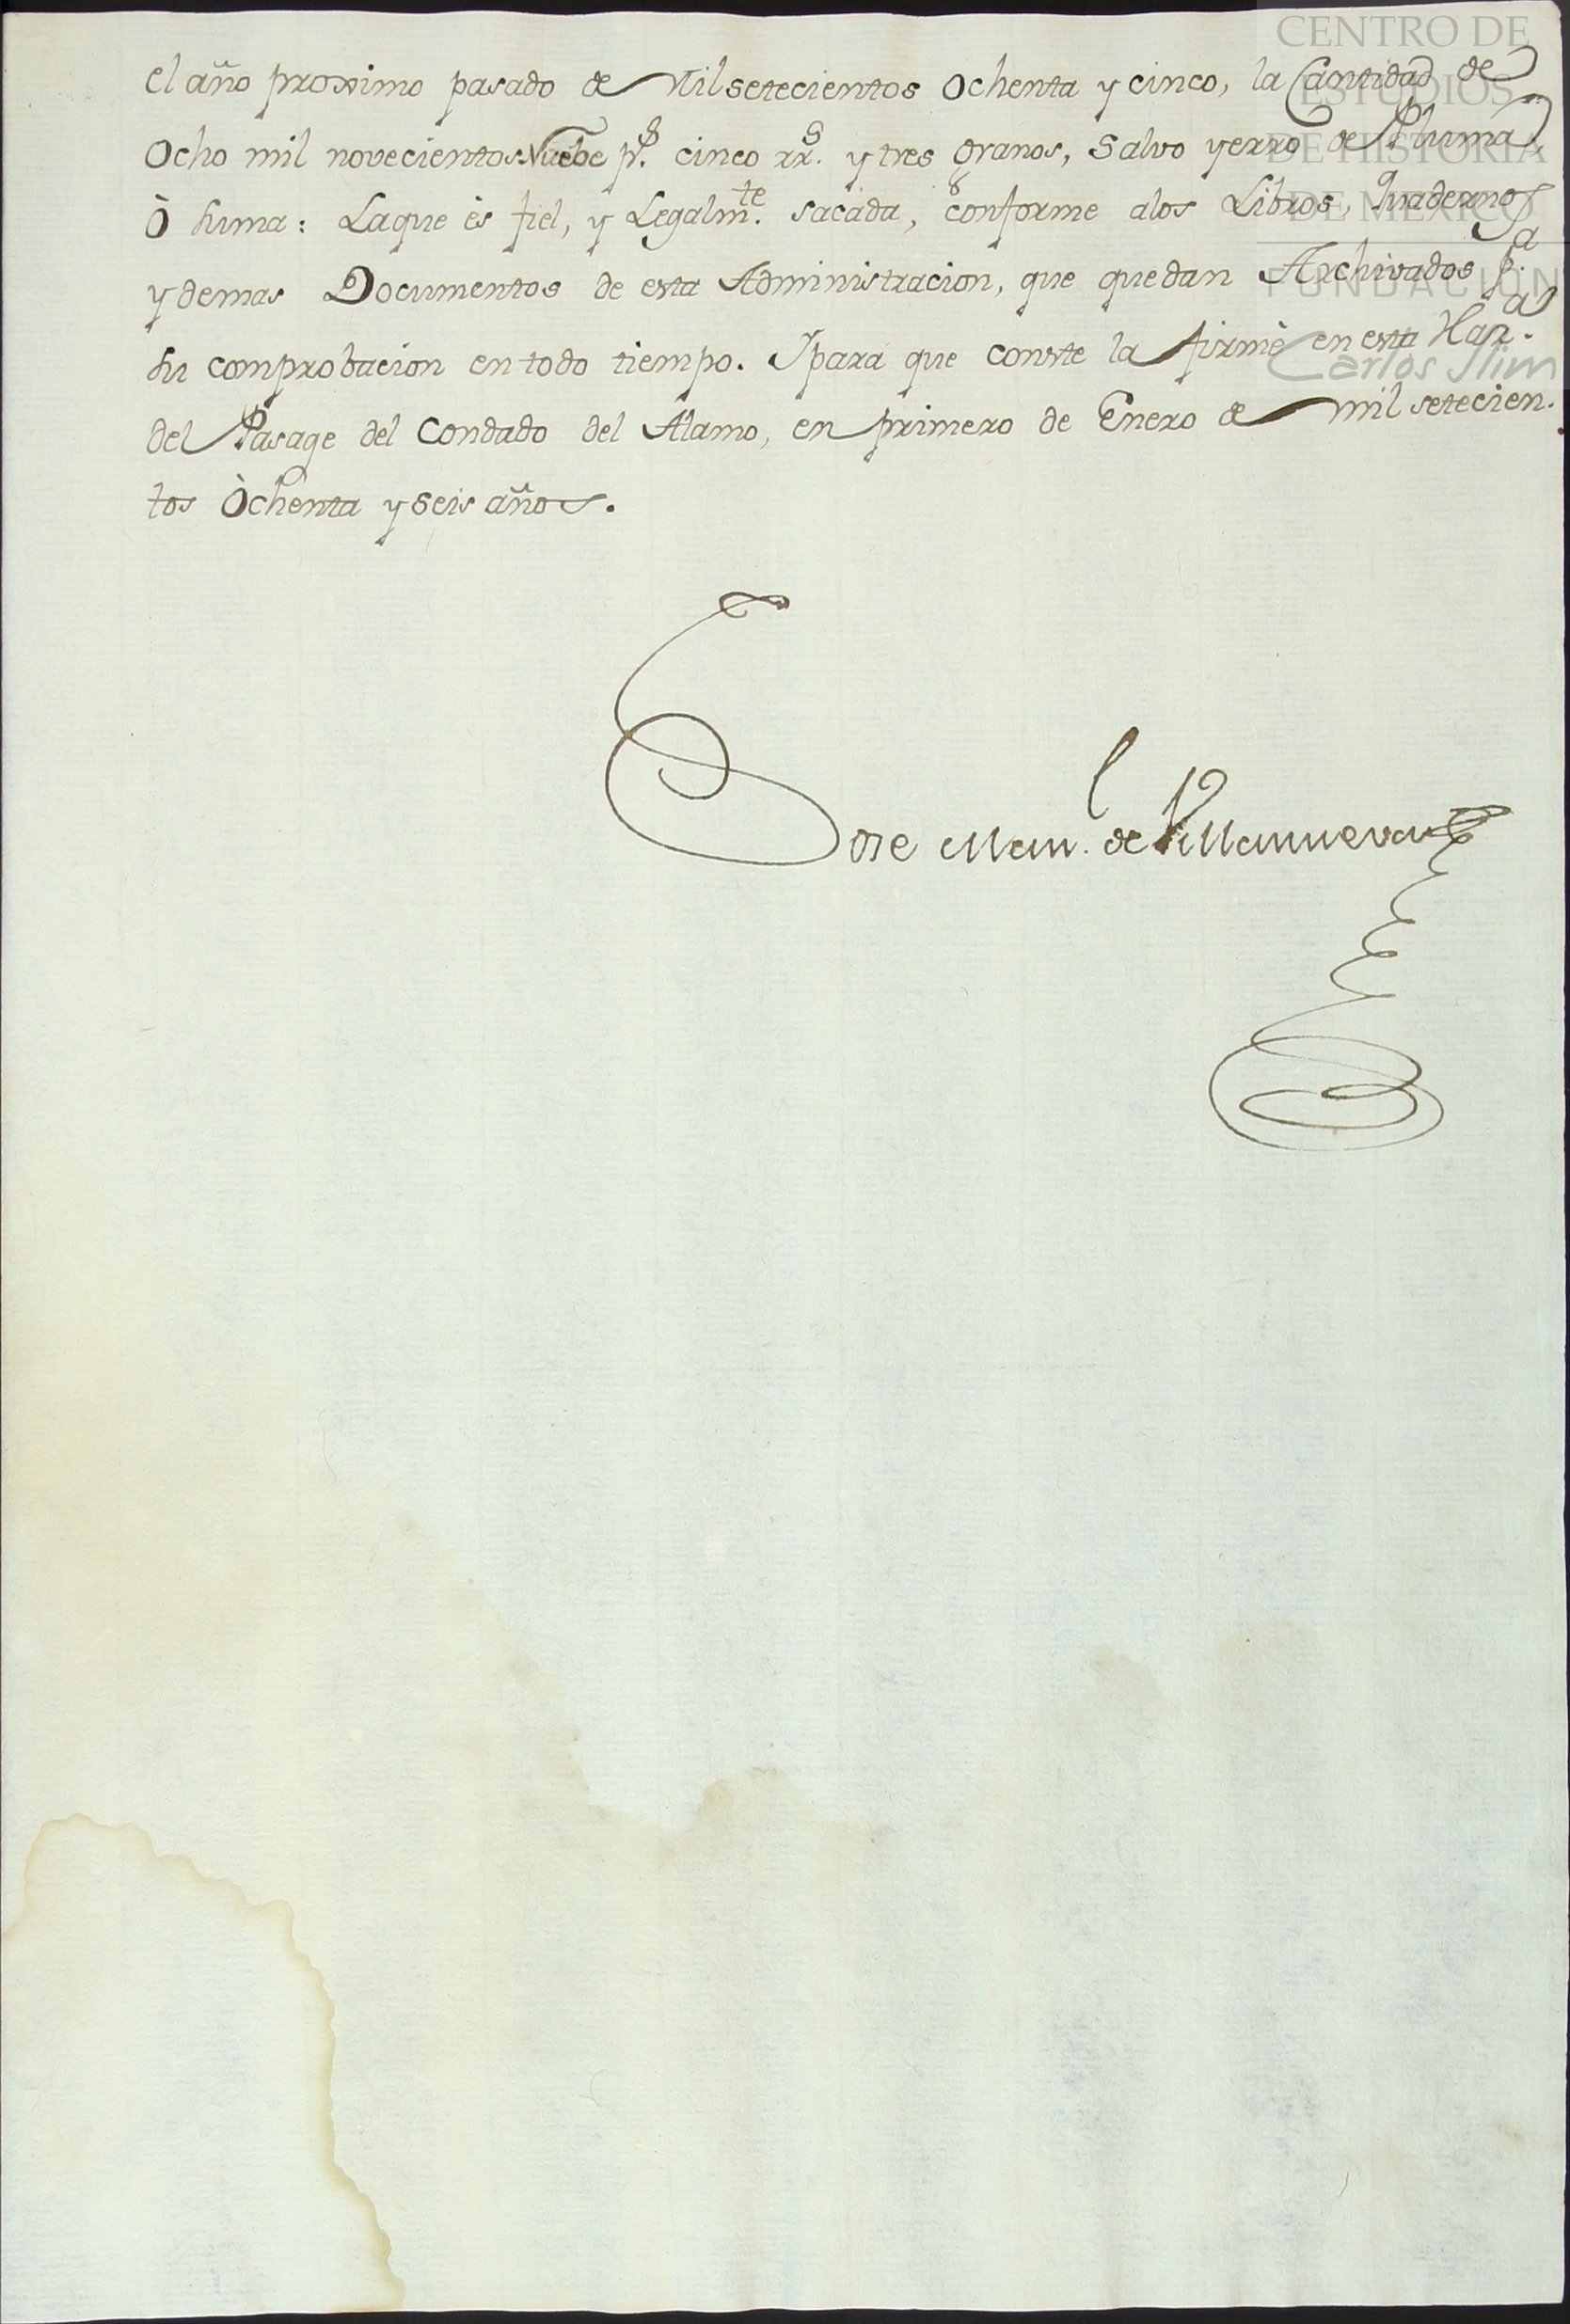 CENTRO DE
ESTUDIOS
DE HISTORIA
DE MEXICO
FUNDACIÓN
Carlos Slim
el año proximo pasado de Mil setecientos ochenta y cinco, la Cantidad de
Ocho mil novecientos Nuebe p.s cinco rr.s y tres granos, Salvo yerro de Pluma,
ò suma: La que ès fiel, y Legalm.te sacada, conforme a los Libros, Quadernos
y demas Documentos de esta Administracion, que quedan Archivados p.a
su comprobacion en todo tiempo. Y para que conste la firmè en esta Haz.da
del Pasage del Condado del Alamo, en primero de Enero de mil setecien.
tos Ochenta y seis años.
Jose Man.l de Villanueva